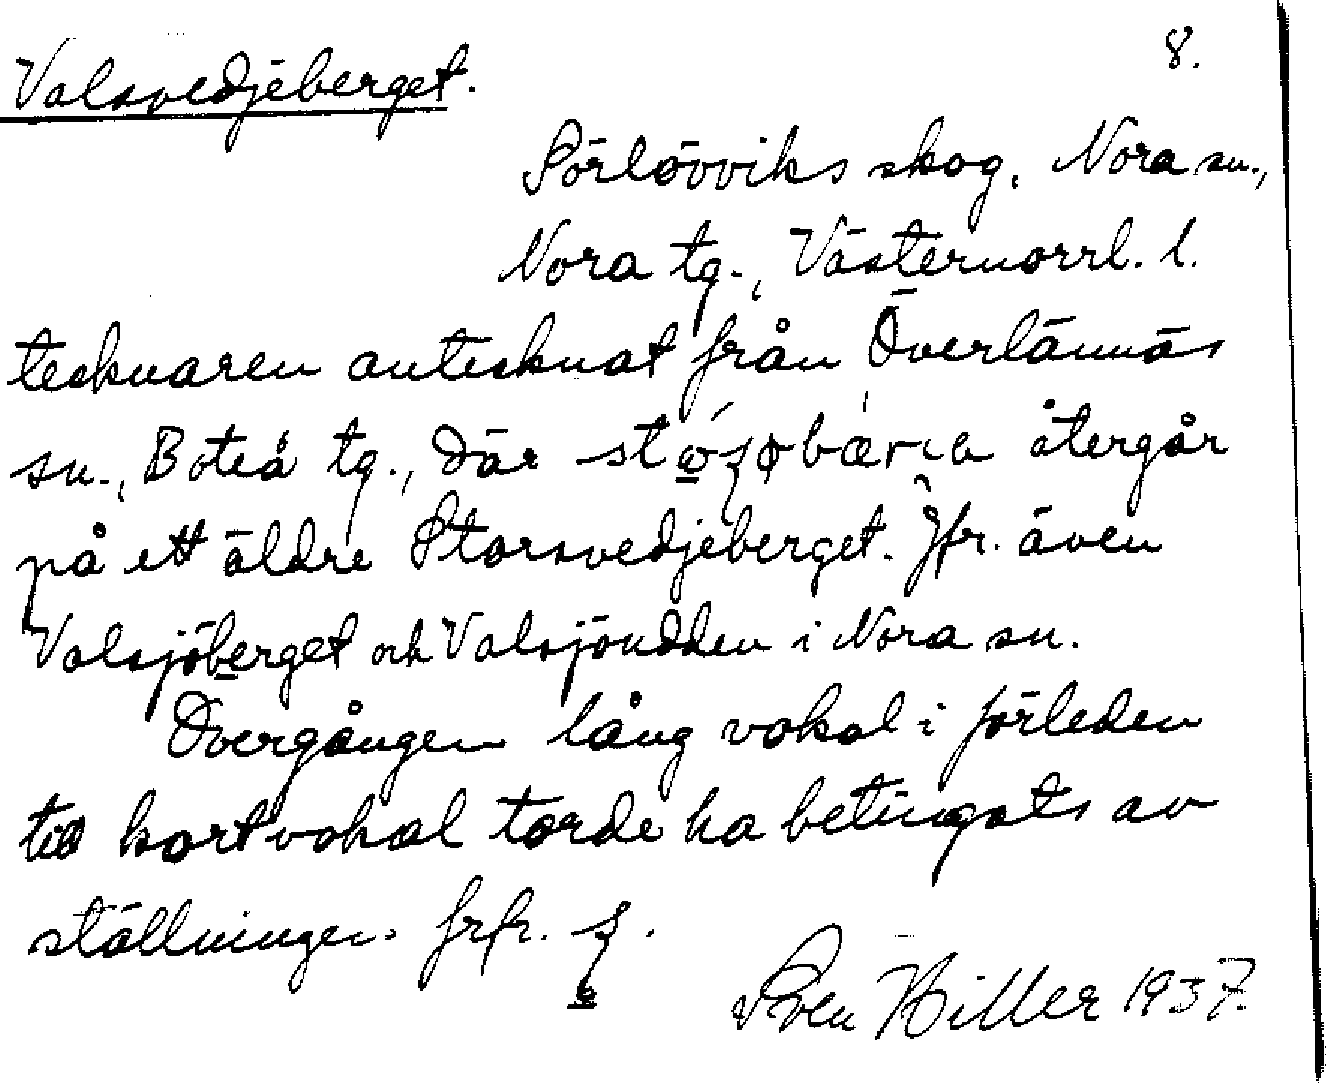 Valsvedjeberget.
8.
Sörlövviks skog, Nora sn.,
Nora tg., Västernorrl. l.
tecknaren antecknat från Överlännäs
sn., Boteå tg., där återgår
på ett äldre Storsvedjeberget. Jfr. även
Valsjöberget och Valsjöudden i Nora sn.
Övergången lång vokal i förleden
till kort vokal torde ha betingats av
ställningen frfr.
Sven Biller 1937.